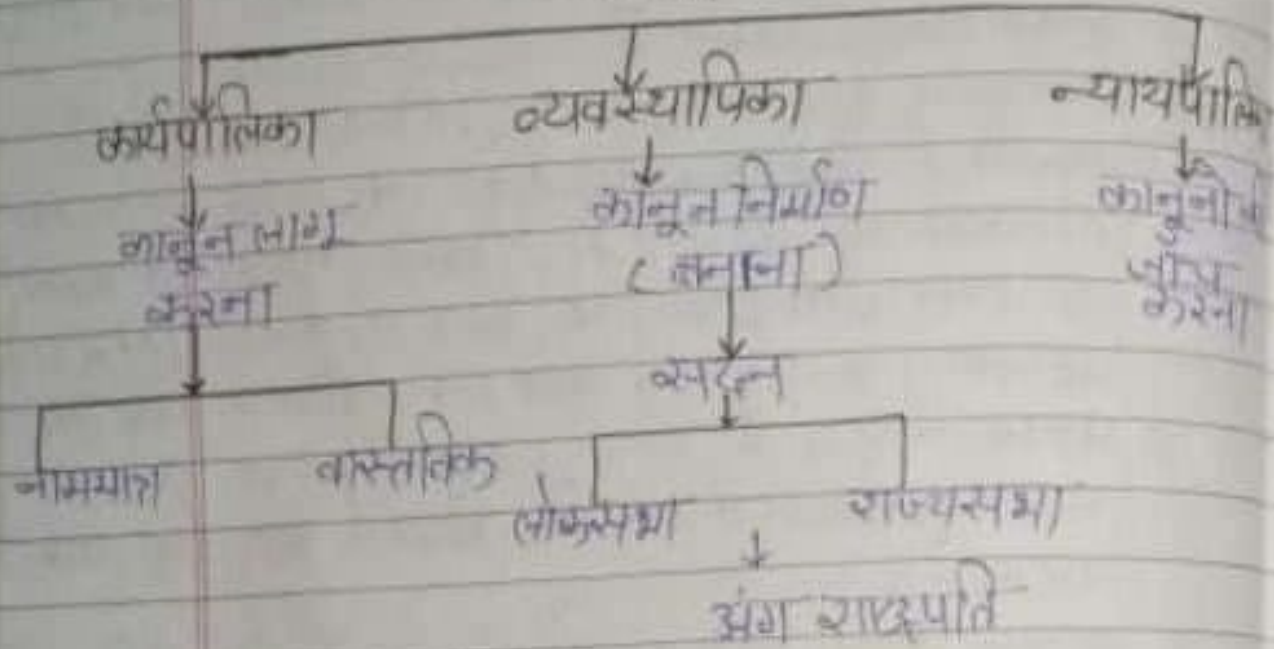 कार्यपालिका
व्यवस्थापिका
न्यायपालि
कानून लागू
करना
कानून निर्माण
(बनाना)
कानूनों की
जाँच
करना
सदन
नाममात्र
वास्तविक
लोकसभा
राज्यसभा
अंग राष्ट्रपति